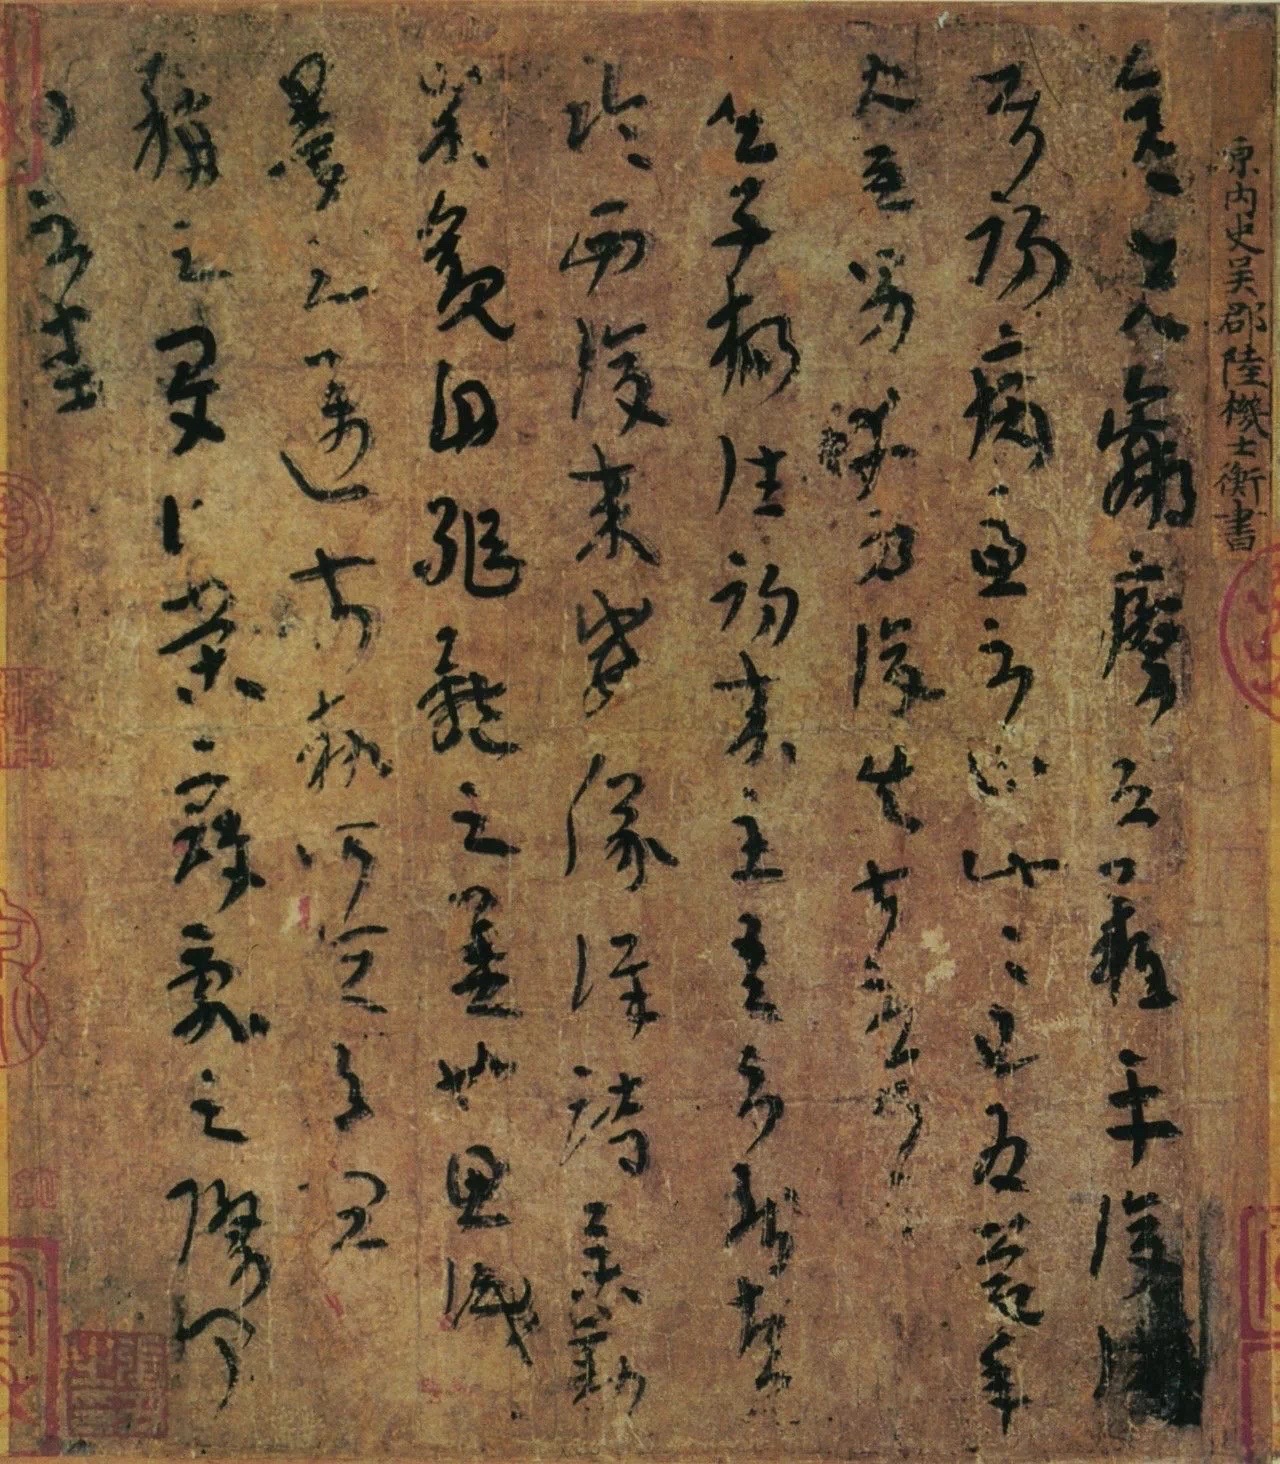 原內史吳郡陸機士衡書
彦先羸瘵恐難平復往屬
初病慮不止此此已為慶承
使唯男幸為復失前憂耳
吳子楊往初來主吾不能盡
臨西復來威儀詳跱舉動
成觀自軀體之美也思識
量之邁前執所恒有宜
稱之夏伯榮寇亂之際聞問
不悉